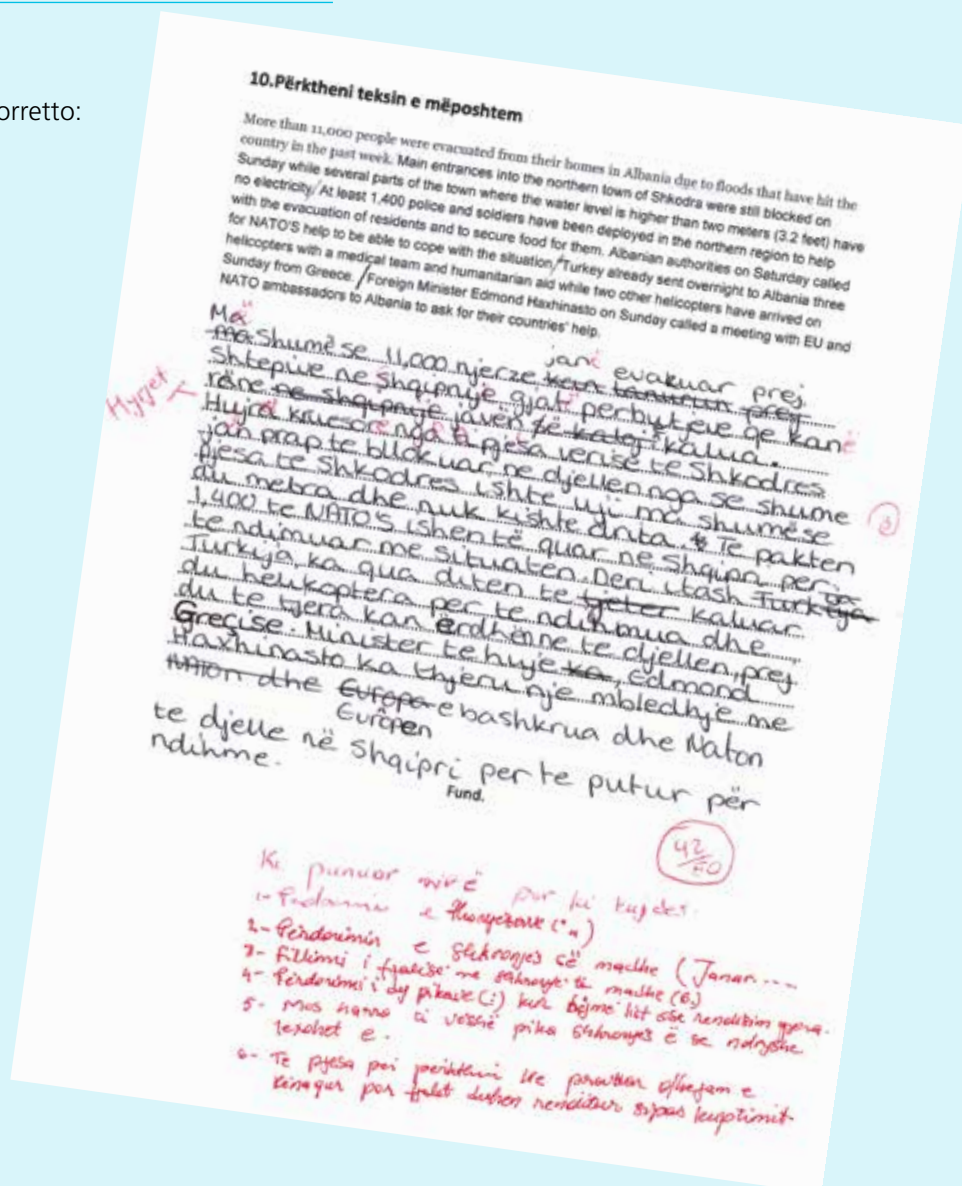 orretto:
10.Përktheni teksin e mëposhtem
More than 11,000 people were evacuated from their homes in Albania due to floods that have hit the
country in the past week. Main entrances into the northern town of Shkodra were still blocked on
Sunday while several parts of the town where the water level is higher than two meters (3.2 feet) have
no electricity/At least 1,400 police and soldiers have been deployed in the northern region to help
with the evacuation of residents and to secure food for them. Albanian authorities on Saturday called
for NATO'S help to be able to cope with the situation/Turkey already sent overnight to Albania three
helicopters with a medical team and humanitarian aid while two other helicopters have arrived on
Sunday from Greece. /Foreign Minister Edmond Haxhinasto on Sunday called a meeting with EU and
NATO ambassadors to Albania to ask for their countries' help.
Më
Shumë se 11,000 njerze, janë evakuar prej
Shtepive ne Shqipnije gjatë perbytjeve qe kanë
rëne javën kalua.
Hyrjet
Hujra kruesore nga pjesa verise te Shkodres
jan prap te bllokuar ne djellen nga se shume
pjesa te Shkodres ishte uji ma shumë se
du metra dhe nuk kishte drita. Te pakten
1,400 te NATO'S ishen të quar ne Shqipri per
te ndimuar me situaten. Deri itash
Turkija, ka qua diten te kaluar
du helikoptera per te ndihmua dhe
du te tjera kan ërdhënne te djellen, prej
Greqise. Minister te huje, Edmond
Haxhinasto ka thjeru nje mbledhje me
Europen e bashkrua dhe Naton
te djelle në Shqipri per te putur për
ndihme.
Fund.
42
Ki punuar mirë por ki kujdes.
1- e thonjezave ("„)
2- Përdorimin e Shkronjes së madhe (Janar....
3- Fillimi i fjalise me shkronje te madhe (6.)
4- Përdorimi i dy pikave (:) kur bëjme list ose renditim gjera.
5- Mos harro ti vesësh pika Shkronjes ë se ndryshe
lexohet e.
6- Te pjesa per perktheni
por fjalet duhen renditur sipas kuptimit.